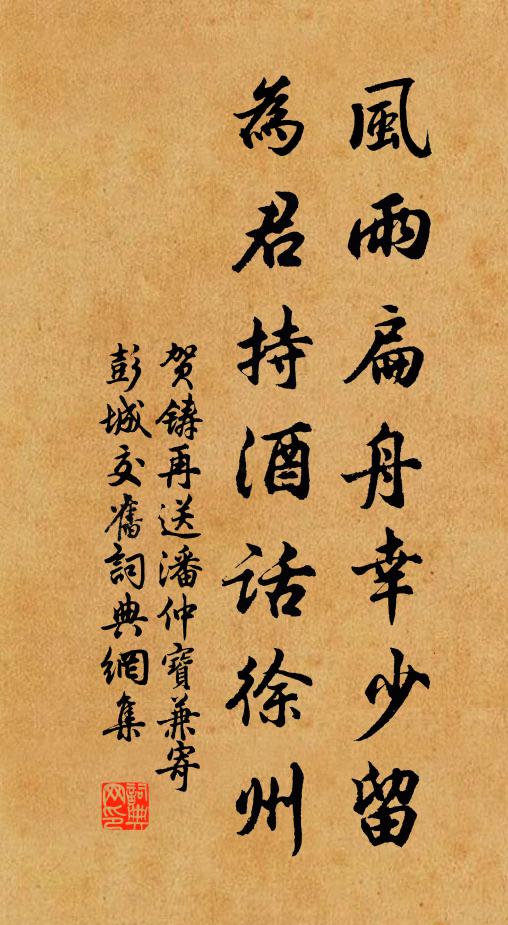 風雨扁舟幸少留
為君持酒話徐州
賀鑄再送潘仲寶兼寄
彭城交舊詞典網集
詞典
网印